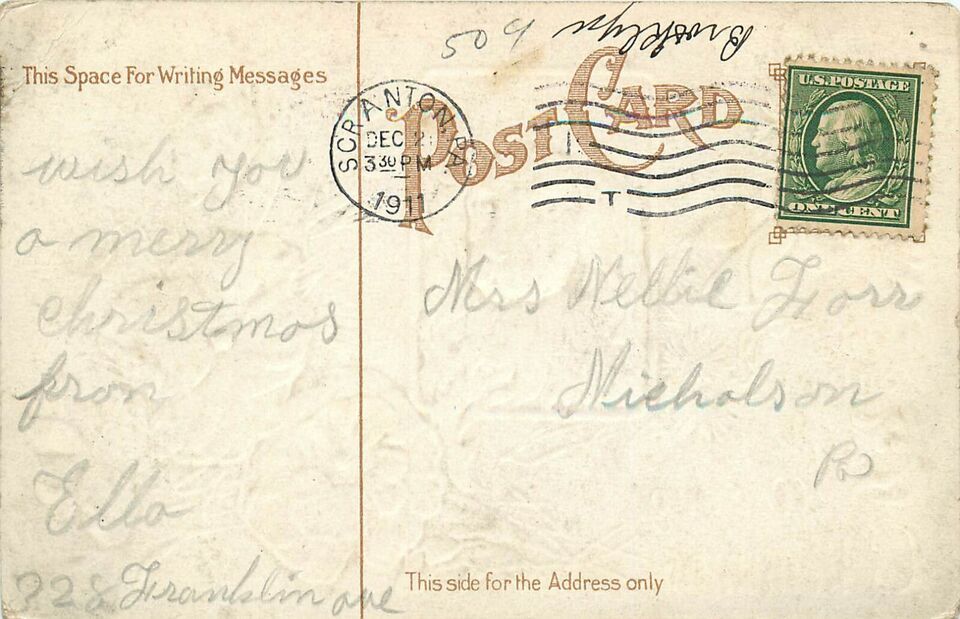 Brooklyn
This Space For Writing Messages
POST CARD
U.S. POSTAGE
ONE CENT
SCRANTON, PA.
DEC 2
3 30 PM
1911
T
wish you
a merry
christmas
from
Ella
Franklin ave
Mrs Nellie
Nicholson
Pa
This side for the Address only